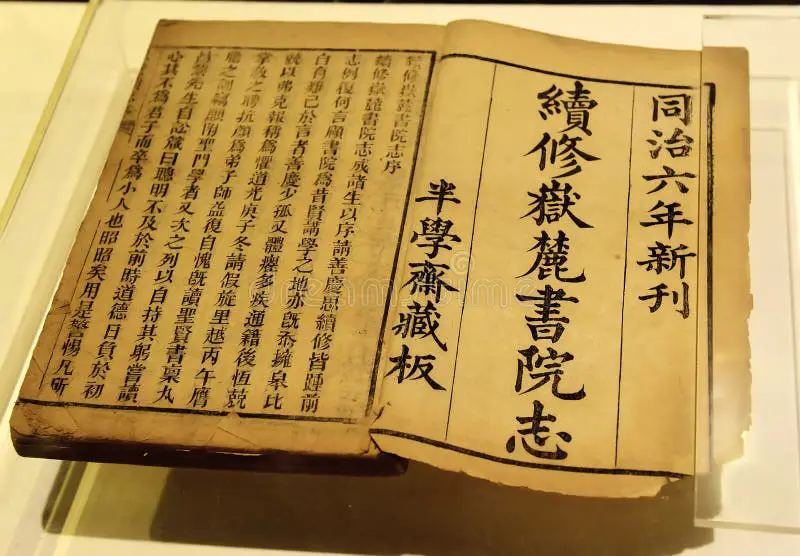 同治六年新刊
續修嶽麓書院志
半學齋藏板
續修嶽麓書院志序
續修嶽麓書院志成諸生以序請善慶思續修皆踵前
志例復何言顧書院爲昔賢講學之地亦既忝擁皋比
自有難已於言者善慶少孤又體癯多疾通籍後恆兢
兢以弗克報稱爲懼道光庚子冬請假旋里越丙午膺
掌教之聘抗顏爲弟子師益復自愧既讀聖賢書稟丸
膽之訓竊願附聖門學者又次之列以自持其躬嘗讀
昌黎先生自訟箴曰聰明不及於前時道德日負於初
心其不爲君子而卒爲小人也昭昭矣用是警惕凡所